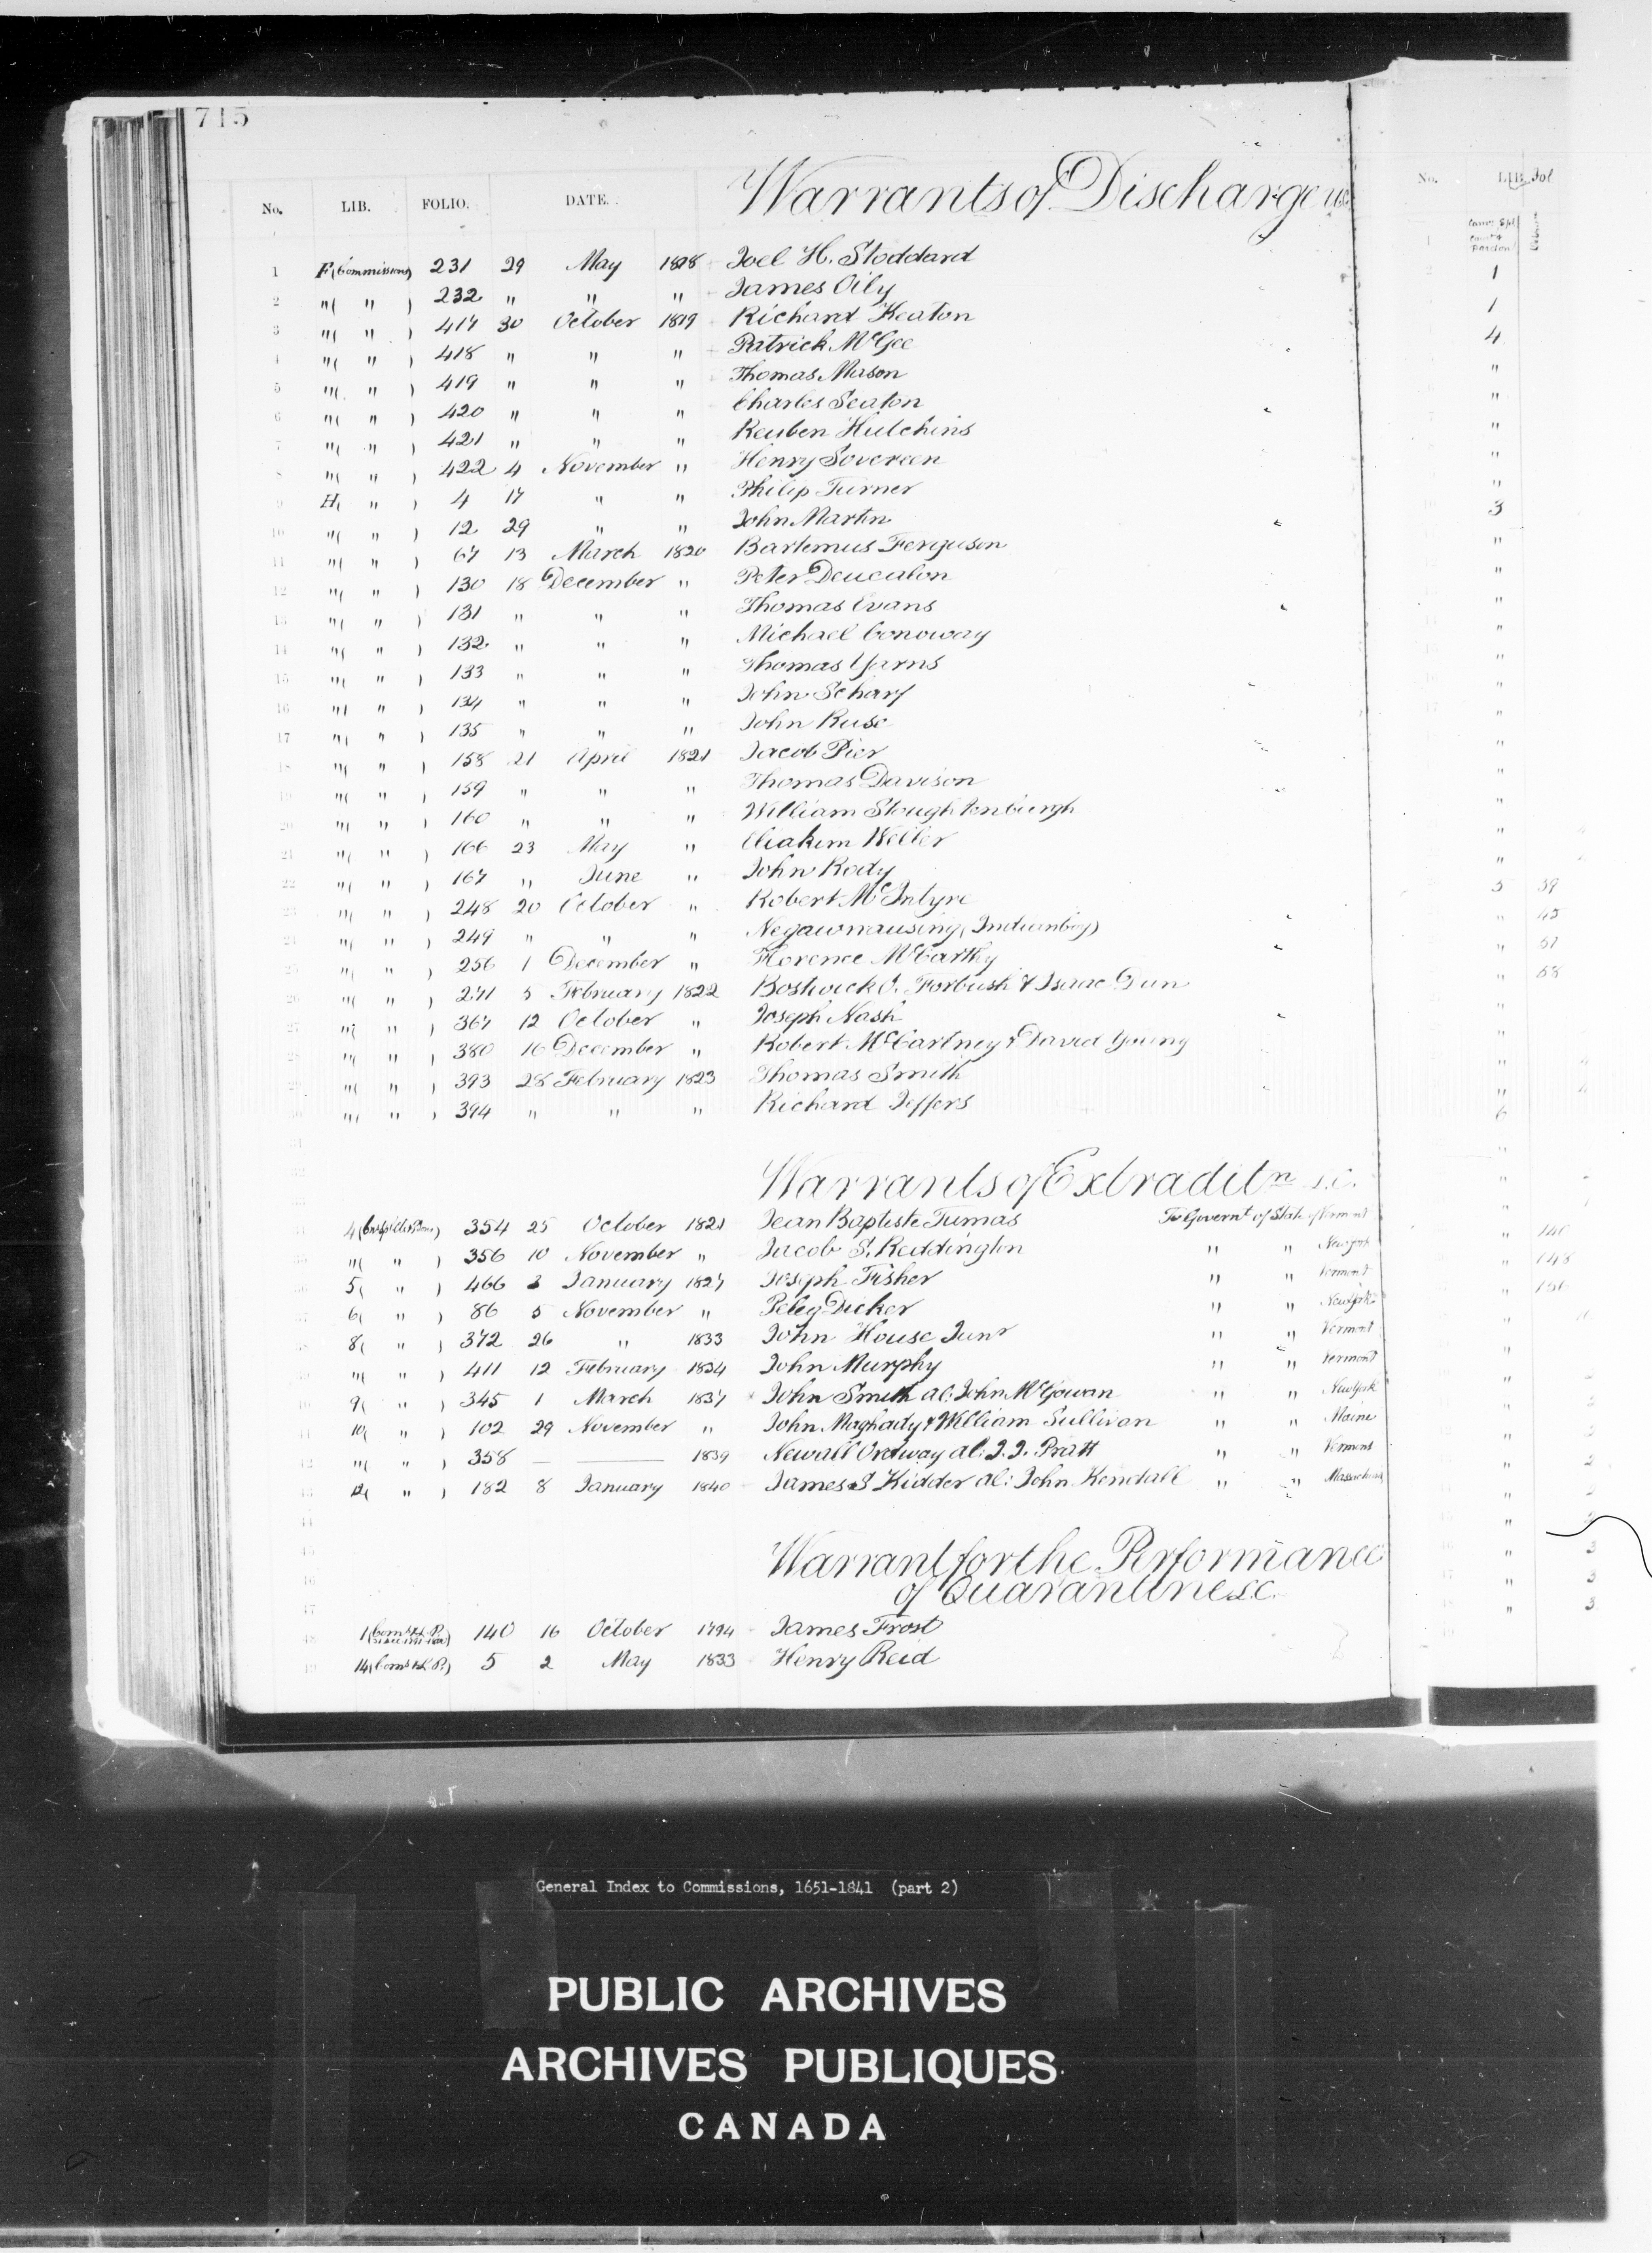 715
No. LIB. FOLIO. DATE. Warrants of Discharge &c.
1 F (Commissions) 231 29 May 1818 Joel H. Stoddard
2 " ( " ) 232 " " " James Oily
3 " ( " ) 417 30 October 1819 Richard Keaton
4 " ( " ) 418 " " " Patrick McGee
5 " ( " ) 419 " " " Thomas Mason
6 " ( " ) 420 " " " Charles Seaton
7 " ( " ) 421 " " " Reuben Hutchins
8 " ( " ) 422 4 November " Henry Sovereen
9 H ( " ) 4 17 " " Philip Turner
10 " ( " ) 12 29 " " John Martin
11 " ( " ) 67 13 March 1820 Bartemus Ferguson
12 " ( " ) 130 18 December " Peter Deucalon
13 " ( " ) 131 " " " Thomas Evans
14 " ( " ) 132 " " " Michael Conoway
15 " ( " ) 133 " " " Thomas Yarns
16 " ( " ) 134 " " " John Scharf
17 " ( " ) 135 " " " John Ruse
18 " ( " ) 158 21 April 1821 Jacob Pier
19 " ( " ) 159 " " " Thomas Davison
20 " ( " ) 160 " " " William Stoughtenburgh
21 " ( " ) 166 23 May " Eliakim Weller
22 " ( " ) 167 " June " John Rody
23 " ( " ) 248 20 October " Robert McIntyre
24 " ( " ) 249 " " " Negawnausing (Indianboy)
25 " ( " ) 256 1 December " Florence McCarthy
26 " ( " ) 271 5 February 1822 Bostwick O. Forbush & Isaac Dun
27 " ( " ) 367 12 October " Joseph Nash
28 " ( " ) 380 16 December " Robert McCartney & David Young
29 " ( " ) 393 28 February 1823 Thomas Smith
30 " ( " ) 394 " " " Richard Jeffers
31
32 Warrants of Extraditn &c.
33
34 4 354 25 October 1821 Jean Baptiste Tumas To Governt of State of Vermont
35 " ( " ) 356 10 November " Jacob S. Reddington " " New York
36 5 ( " ) 466 3 January 1827 Joseph Fisher " " Vermont
37 6 ( " ) 86 5 November " Peleg Dicker " " New York
38 8 ( " ) 372 26 " 1833 John House Junr " " Vermont
39 " ( " ) 411 12 February 1834 John Murphy " " Vermont
40 9 ( " ) 345 1 March 1837 John Smith al: John McGowan " " New York
41 10 ( " ) 102 29 November " John Maghady & William Sullivan " " Maine
42 " ( " ) 358 — — 1839 Newall Ordway al: J. J. Pratt " " Vermont
43 12 ( " ) 182 8 January 1840 James S Kidder al: John Kendall " "
44
45 Warrant for the Performance
46 of Quarantine &c.
47
48 1 140 16 October 1794 James Frost
49 14 5 2 May 1833 Henry Reid
No. LIB. Fol
1
1
4
3
5 39
45
51
58
6
140
148
156
General Index to Commissions, 1651-1841 (part 2)
PUBLIC ARCHIVES
ARCHIVES PUBLIQUES
CANADA